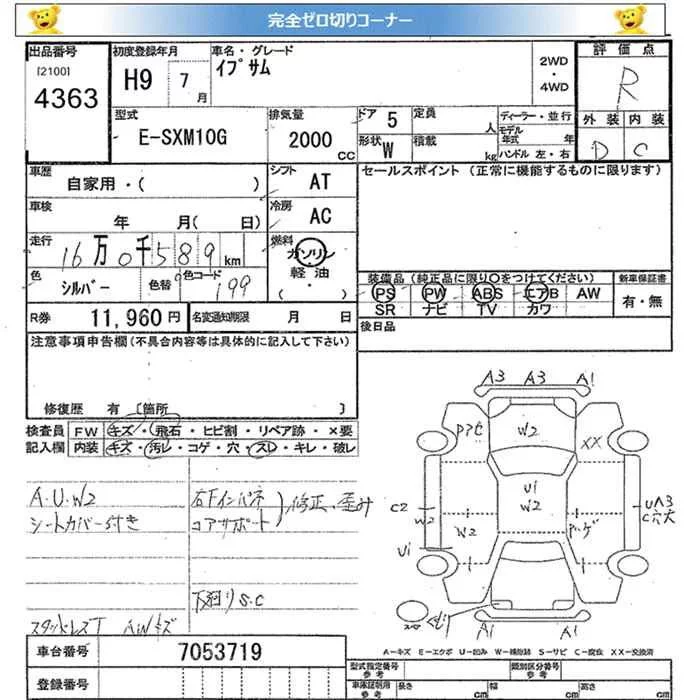 完全ゼロ切りコーナー
出品番号
[2100]
4363
初度登録年月
H9 7月
車名・グレード
イプサム
2WD
・
4WD
評価点
R
型式
E-SXM10G
排気量
2000
CC
ドア 5
定員
人
ディーラー・並行
モデル年式
年
外装 内装
D C
形状 W
積載
kg
ハンドル 左・右
車歴
自家用・( )
シフト
AT
セールスポイント (正常に機能するものに限ります)
車検
年 月( 日)
冷房
AC
走行
16万0千589km
燃料
ガソリン
・
軽油
( )
色
シルバー
色替
色コード
199
装備品 (純正品に限り○をつけてください)
新車保証書
PS PW ABS エアB AW
有・無
SR ナビ TV カワ
R券
11,960円
名変通知期限 月 日
後日品
注意事項申告欄(不具合内容等は具体的に記入して下さい)
修復歴 有 [箇所 ]
検査員
記入欄
FW キズ・飛石・ヒビ割・リペア跡・×要
内装 キズ・汚レ・コゲ・穴・スレ・キレ・破レ
A.U.W2
シートカバー付き
右下インパネ
コアサポート
修正、歪み
下廻りS.C
スタッドレスT AWキズ
A3 A3 A1
W2
XX
U1
W2
C2
W2
W2
U1
UA3
C穴大
A1 A1
A-キズ E-エクボ U-凹み W-補修跡 S-サビ C-腐食 XX-交換済
車台番号
7053719
登録番号
型式指定番号
参考
類別区分番号
参考
車庫証明用
参考
長さ
cm
幅
cm
高さ
cm